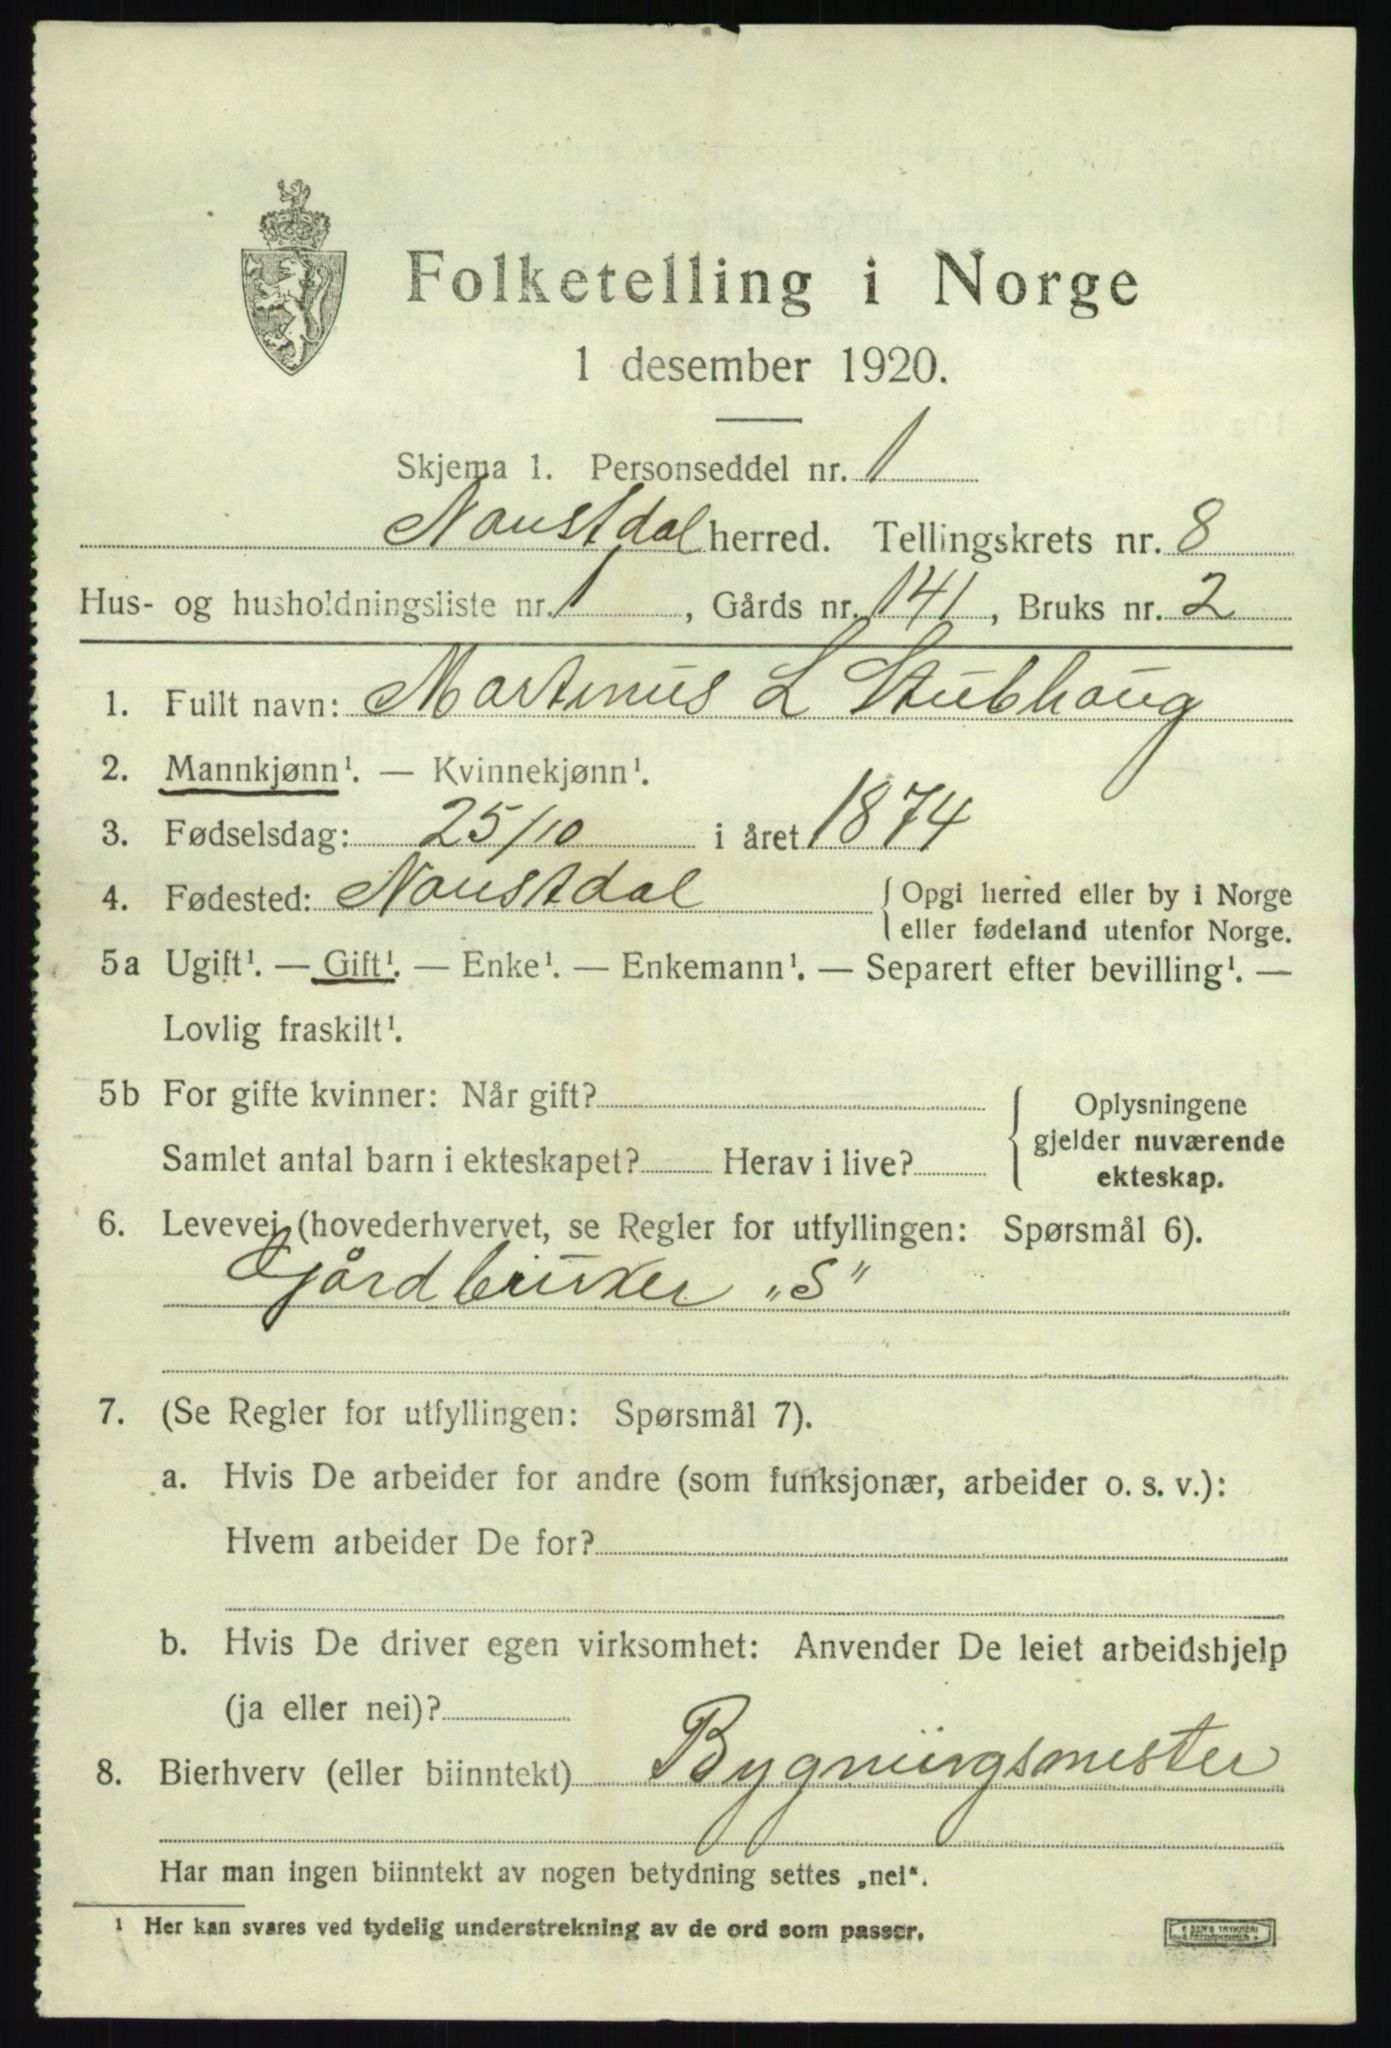 Folketelling i Norge
1 desember 1920.
Skjema 1. Personseddel nr. 1
Naustdal herred. Tellingskrets nr. 8
Hus- og husholdningsliste nr. 1, Gårds nr. 141, Bruks nr. 2
1. Fullt navn: Martinus L Stubhaug
2. Mannkjønn¹. — Kvinnekjønn¹.
3. Fødselsdag: 25/10 i året 1874
4. Fødested: Naustdal { Opgi herred eller by i Norge
eller fødeland utenfor Norge.
5a Ugift¹. — Gift¹. — Enke¹. — Enkemann¹. — Separert efter bevilling¹. —
Lovlig fraskilt¹.
5b For gifte kvinner: Når gift?
Samlet antal barn i ekteskapet? Herav i live?
Oplysningene
gjelder nuværende
ekteskap.
6. Levevei (hovederhvervet, se Regler for utfyllingen: Spørsmål 6).
Gårdbruker „S"
7. (Se Regler for utfyllingen: Spørsmål 7).
a. Hvis De arbeider for andre (som funksjonær, arbeider o. s. v.):
Hvem arbeider De for?
b. Hvis De driver egen virksomhet: Anvender De leiet arbeidshjelp
(ja eller nei)?
8. Bierhverv (eller biinntekt) Bygningsmester
Har man ingen biinntekt av nogen betydning settes „nei".
¹ Her kan svares ved tydelig understrekning av de ord som passer.